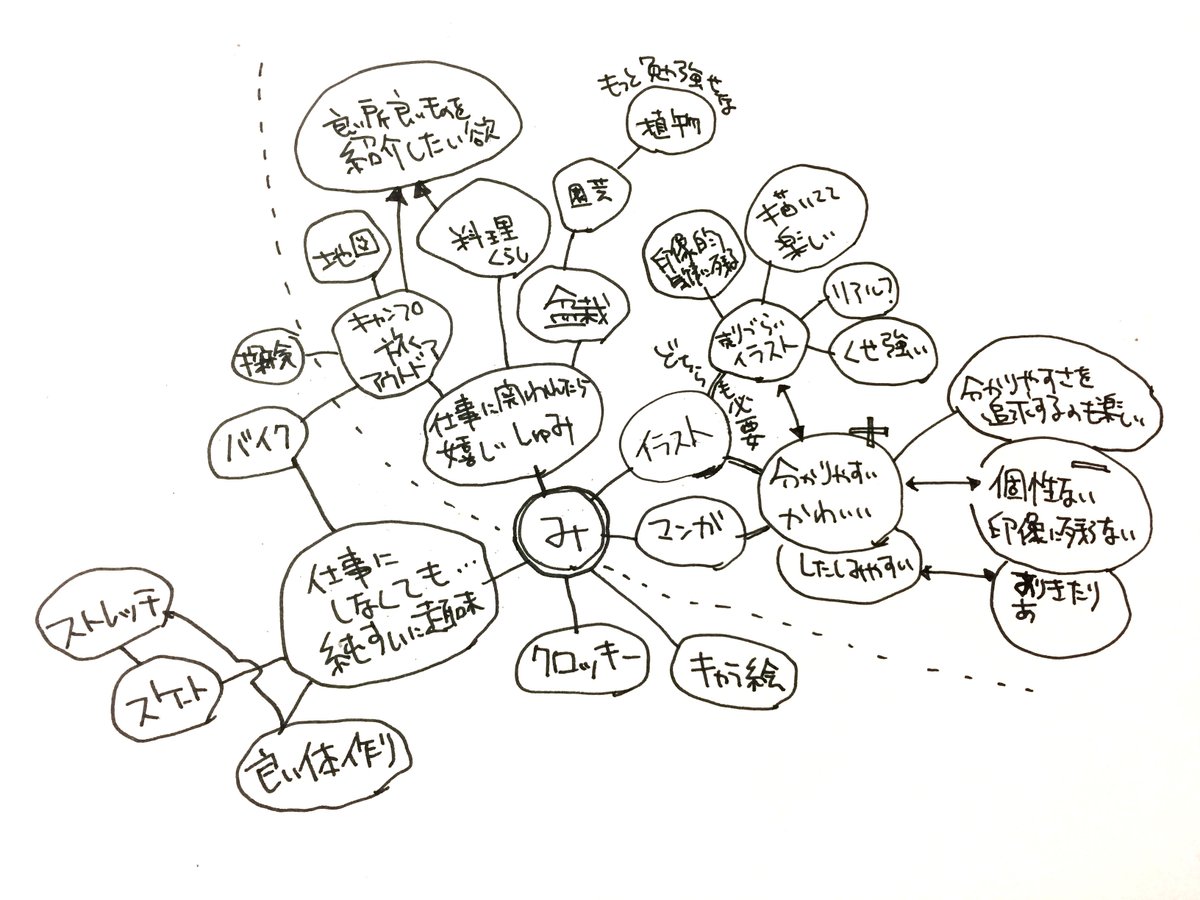 もっと勉強せな
植物
良い所良いものを
紹介したい欲
園芸
料理
くらし
地図
盆栽
キャンプ
アウトドア
探検
バイク
仕事に関われたら
嬉しいしゅみ
描いてて
楽しい
印象的
リアル?
くせ強い
イラスト
どちらも必要
イラスト
分かりやすさを
追求するのも楽しい
+
分かりやすい
かわいい
したしみやすい
−
個性ない
印象に残らない
ありきたり
み
マンガ
クロッキー
キャラ絵
仕事に
しなくても…
純すいに趣味
ストレッチ
スケート
良い体作り